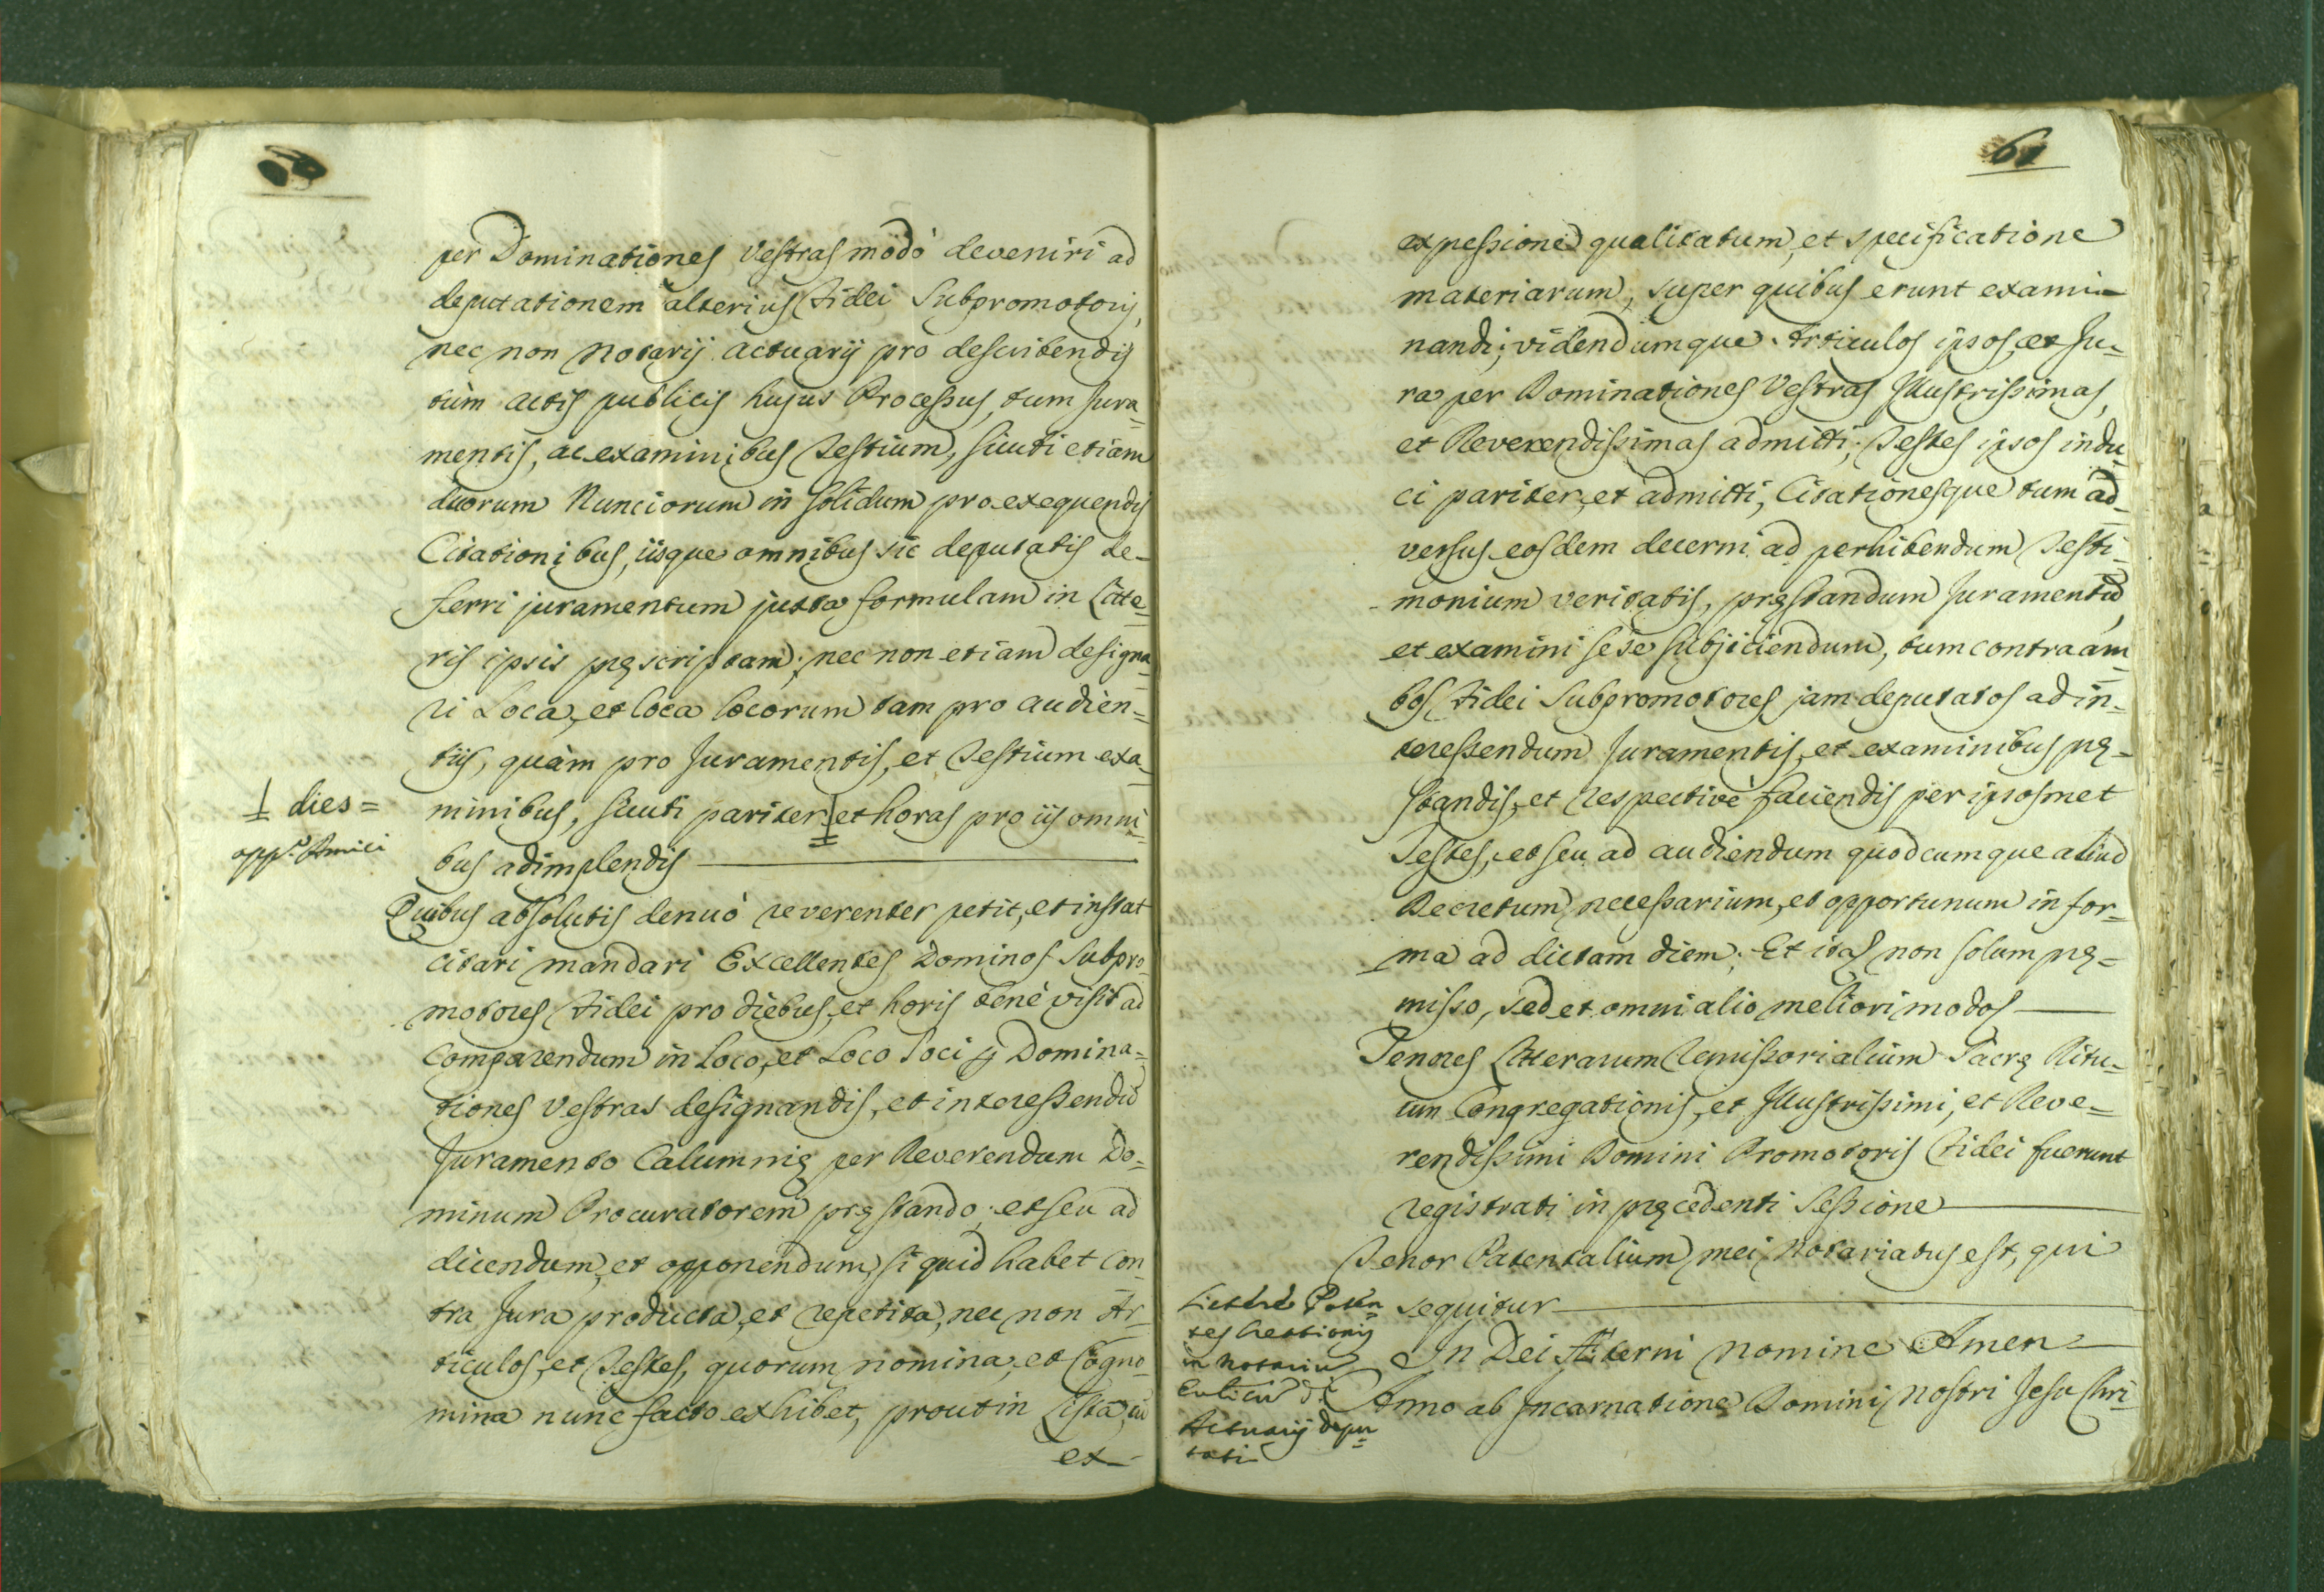 per Dominationes Vestras modò deveniri ad
deputationem alterius Fidei Subpromotoris,
nec non Notarij Actuarij pro describendis
tùm actis publicis hujus Processus, tum Jura-
mentis, ac examinibus Testium, sicuti etiam
duorum Nunciorum in solidum pro exequendis
Citationibus, iisque omnibus sic deputatis de-
ferri juramentum juxta formulam in Litte-
ris ipsis pręscriptam; nec non etiam designa-
ri Loca, et loca locorum tam pro audien=
tiis, quàm pro Juramentis, et Testium exa-
1 dies=
opp. Amici
minibus, sicuti pariter et horas pro iis omni-
bus adimplendis
Quibus absolutis denuò reverenter petit, et instat
citari mandari Excellentes Dominos Subpro-
motores Fidei pro diebus, et horis benè visis ad
Comparendum in Loco, et Loco Loci per Domina=
tiones Vestras designandis, et interessendum
Juramento Calumnię per Reverendum Do=
minum Procuratorem pręstando; et seu ad
dicendum, et opponendum, si quid habet con-
tra Jura producta, et repetita, nec non Ar-
ticulos, et Testes, quorum nomina, et Cogno-
mina nunc facto exhibet, prout in Lista, cū
ex-
61
expessione qualitatum, et specificatione
materiarum, super quibus erunt exami=
nandi; videndumque Articulos ipsos, et Ju=
ra per Dominationes Vestras Illustrissimas,
et Reverendissimas admitti; Testes ipsos indu-
ci pariter, et admitti, Citationesque tum ad-
versus eosdem decerni ad perhibendum Testi-
monium veritatis, pręstandum Juramentū,
et examini sese subjiciendum, tum contra am-
bos Fidei Subpromotores jam deputatos ad in-
teressendum Juramentis, et examinibus prę-
standis, et respectivè faciendis per ipsosmet
Testes, et seu ad audiendum quodcumque aliud
Decretum necessarium, et opportunum in for-
ma ad dictam diem; Et ita non solum prę=
misso, sed et omni alio meliori modo
Tenores Litterarum Remissorialium Sacrę Ritu-
um Congregationis, et Illustrissimi, et Reve=
rendissimi Domini Promotoris Fidei fuerunt
registrati in pręcedenti Sessione
Tenor Patentalium mei Notariatus est, qui
sequitur
Litterę Paten=
tes
in Notariū
Actuarij depu=
tati
In Dei Æterni nomine Amen
Anno ab Incarnatione Domini Nostri Jesu Chri-